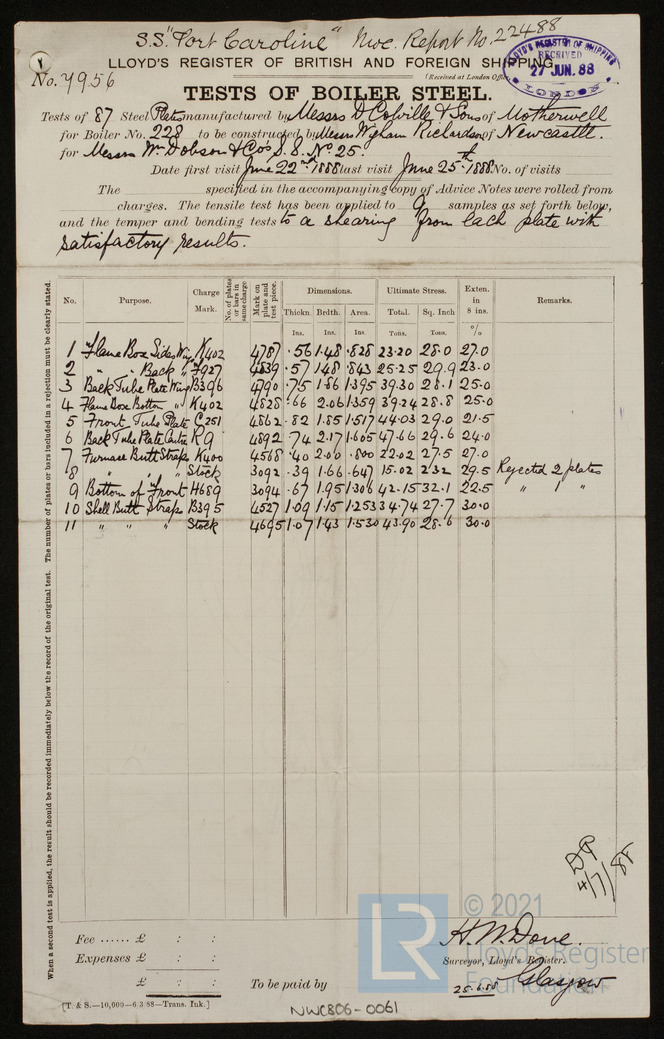 S.S. "Port Caroline" Nwc. Report No. 22488
LLOYD'S REGISTER OF BRITISH AND FOREIGN SHIPPING.
LLOYD'S REGISTER OF SHIPPING
RECEIVED
27 JUN. 88
LONDON
No. 7956
(Received at London Office
TESTS OF BOILER STEEL.
Tests of 87 Steel Plates manufactured by Messrs D Colville & Sons of Motherwell
for Boiler No. 228 to be constructed by Messrs Wigham Richardson of Newcastle.
for Messrs Wm Dobson & Co's S.S. No 25.
Date first visit June 22nd 1888 last visit June 25th 1888 No. of visits
The specified in the accompanying copy of Advice Notes were rolled from
charges. The tensile test has been applied to 9 samples as set forth below,
and the temper and bending tests to a shearing from each plate with
satisfactory results.
No. Purpose. Charge Mark. No. of plates or bars in same charge Mark on plate and test piece. Dimensions. Ultimate Stress. Exten. in 8 ins. Remarks.
Thickn. Brdth. Area. Total. Sq. Inch
Ins. Ins. Ins. Tons. Tons. %
1 Flame Box Sides Wing K402 4787 .56 1.48 .828 23.20 28.0 27.0
2 " " Back " F927 4839 .57 1.48 .843 25.25 29.9 23.0
3 Back Tube Plate Wing B396 4790 .75 1.86 1.395 39.30 28.1 25.0
4 Flame Box Bottom " K402 4828 .66 2.06 1.359 39.24 28.8 25.0
5 Front Tube Plate C251 4862 .82 1.85 1.517 44.03 29.0 21.5
6 Back Tube Plate Centre R9 4892 .74 2.17 1.605 47.66 29.6 24.0
7 Furnace Butt Straps K400 4568 .40 2.00 .800 22.02 27.5 27.0
8 " " " Stock 3092 .39 1.66 .647 15.02 23.2 29.5 Rejected 2 plates
9 Bottom of Front H689 3094 .67 1.95 1.306 42.15 32.1 22.5 " 1 "
10 Shell Butt Straps B395 4527 1.09 1.15 1.253 34.74 27.7 30.0
11 " " " Stock 4695 1.07 1.43 1.530 43.90 28.6 30.0
When a second test is applied, the result should be recorded immediately below the record of the original test. The number of plates or bars included in a rejection must be clearly stated.
4/7/88
© 2021
LR
Lloyd's Register
Foundation
Fee ...... £ : :
Expenses £ : :
£ : :
To be paid by
H. W. Dove.
Surveyor, Lloyd's Register.
25.6.88 Glasgow
[T. & S.—10,000—6/3/88—Trans. Ink.]
NWC806-0061